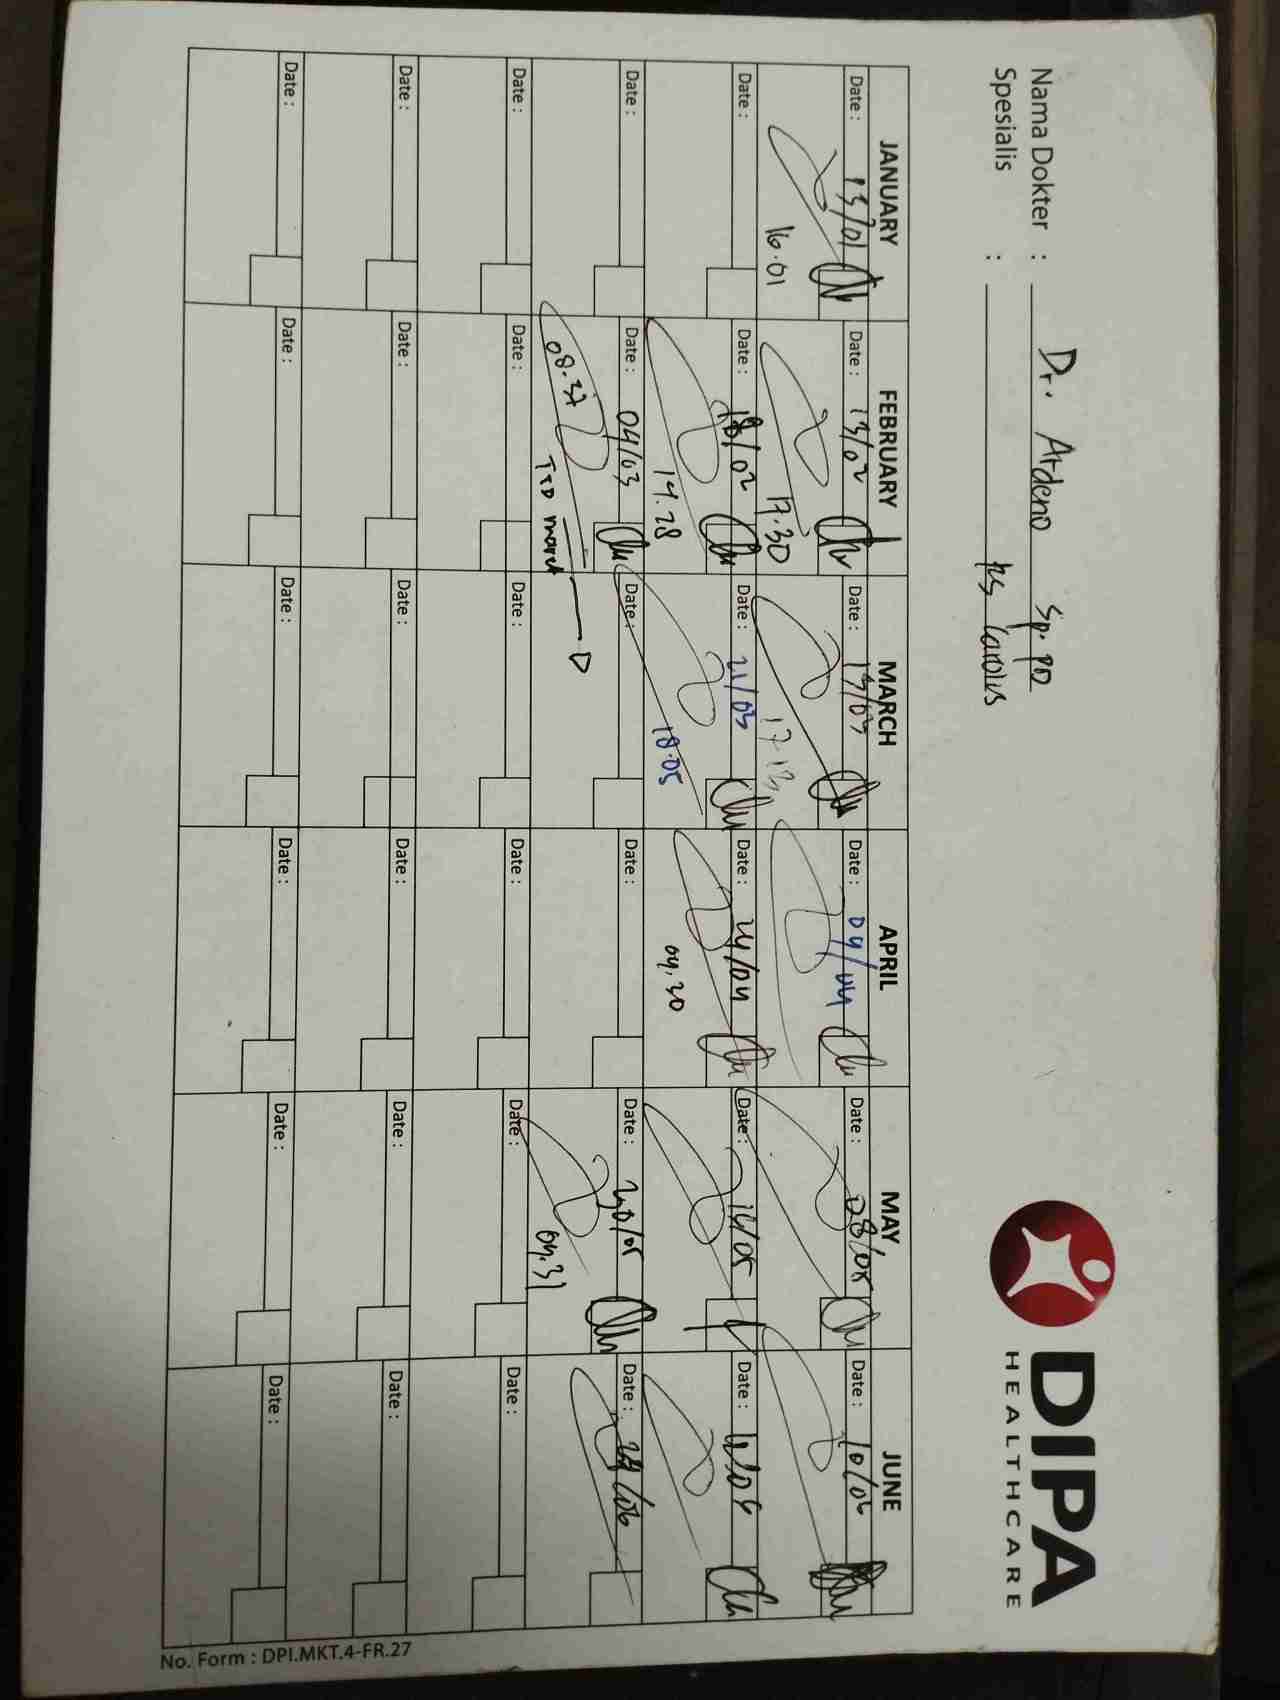 Nama Dokter : Dr. Ardeno Sp. PD
Spesialis : RS Carolus
DIPA
HEALTHCARE
JANUARY FEBRUARY MARCH APRIL MAY JUNE
Date : 13/01 Date : 13/02 Date : 13/03 Date : 04/04 Date : 08/05 Date : 10/06
16.01 17.30 17.13
Date : Date : 18/02 Date : 21/03 Date : 24/04 Date : 14/05 Date :
14.28 18.05 09.30
Date : Date : 04/03 Date : Date : Date : 20/05 Date : 24/06
08.37 TTD maret 09.31
Date : Date : Date : Date : Date : Date :
Date : Date : Date : Date : Date :
Date : Date : Date : Date : Date : Date :
No. Form : DPI.MKT.4-FR.27